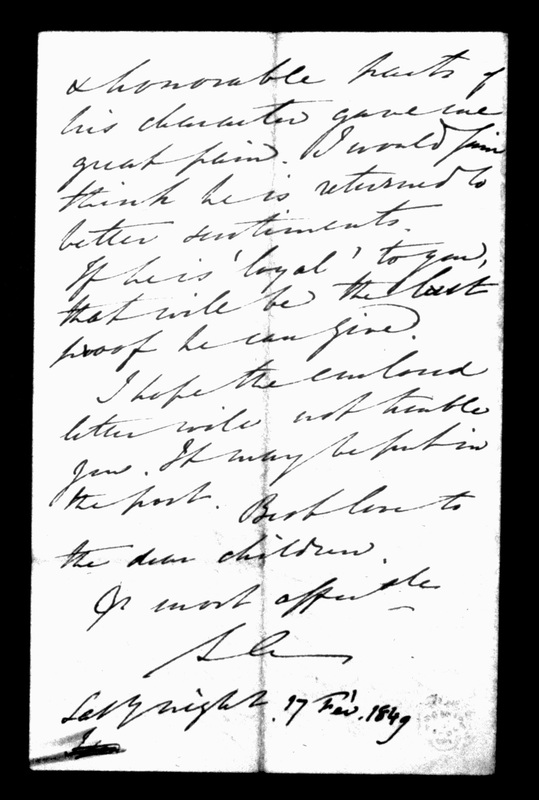 & honorable parts of
his character gave me
great pain. I would fain
think he is returned to
better sentiments.
If he is 'loyal' to you,
that will be the best
proof he can give.
I hope the enclosed
letter will not trouble
you. It may be put in
the post. Best love to
the dear children.
Yr most affectly
Satynight. 17 Fév. 1849